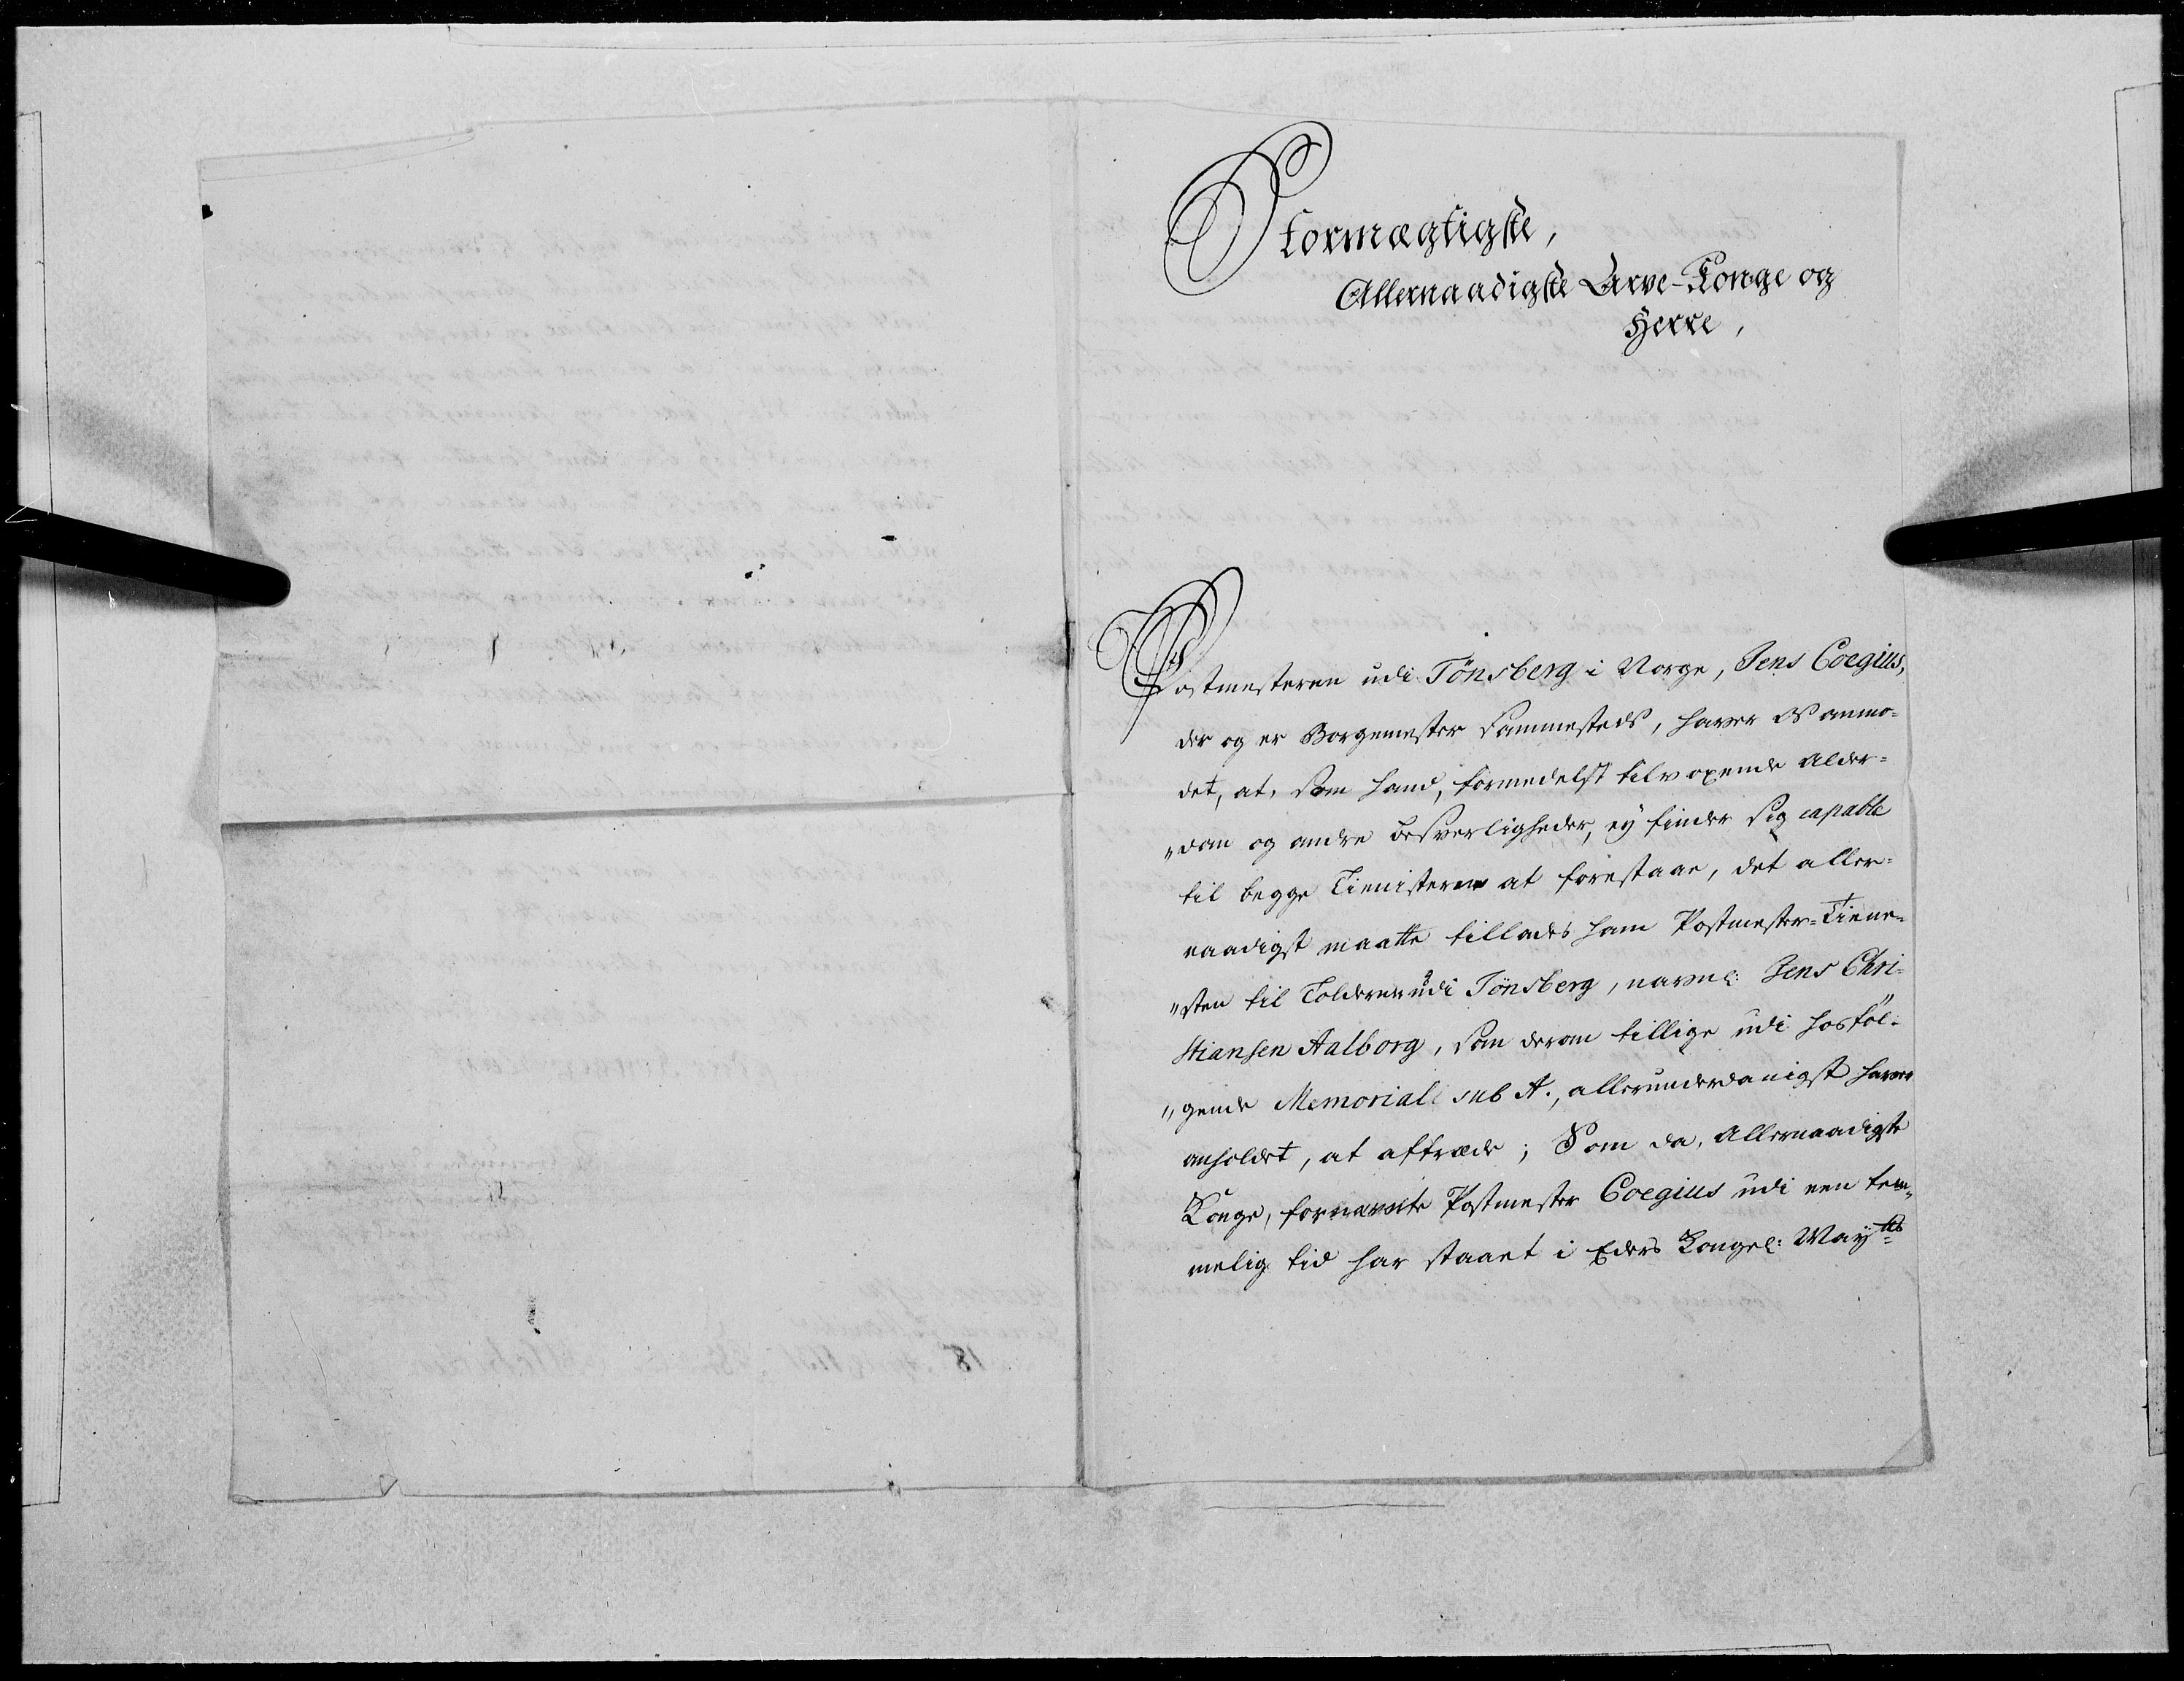 Stormægtigste,
Allernaadigste Arve-Konge og
Herre,
Postmesteren udi Tönsberg i Norge, Jens Coegius,
der og er Borgemester sammesteds, haver os anmo-
det, at, som hand, formedelst tilvoxende Alder-
„dom og andre besværligheder, ey finder sig capable
til begge Tienisterne at forestaae, det aller-
naadigst maatte tillades ham Postmester-Tiene-
„sten til Tolderen udi Tönsberg, navnl: Jens Chri-
stiansen Aalborg, som derom tillige udi hosföl-
„gende Memorial sub A., allerunderdanigst haver
anholdet, at aftræde; Som da, Allernaadigste
Konge, fornævnte Postmester Coegius udi een tem„
melig tid har staaet i Eders Kongel: May:tts